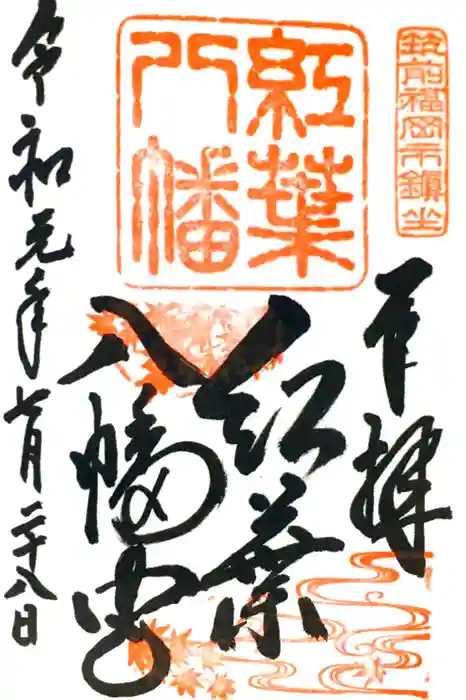 筑前福岡市鎮坐
奉拝
紅葉
八幡
紅葉
八幡宮
令和元年七月二十八日